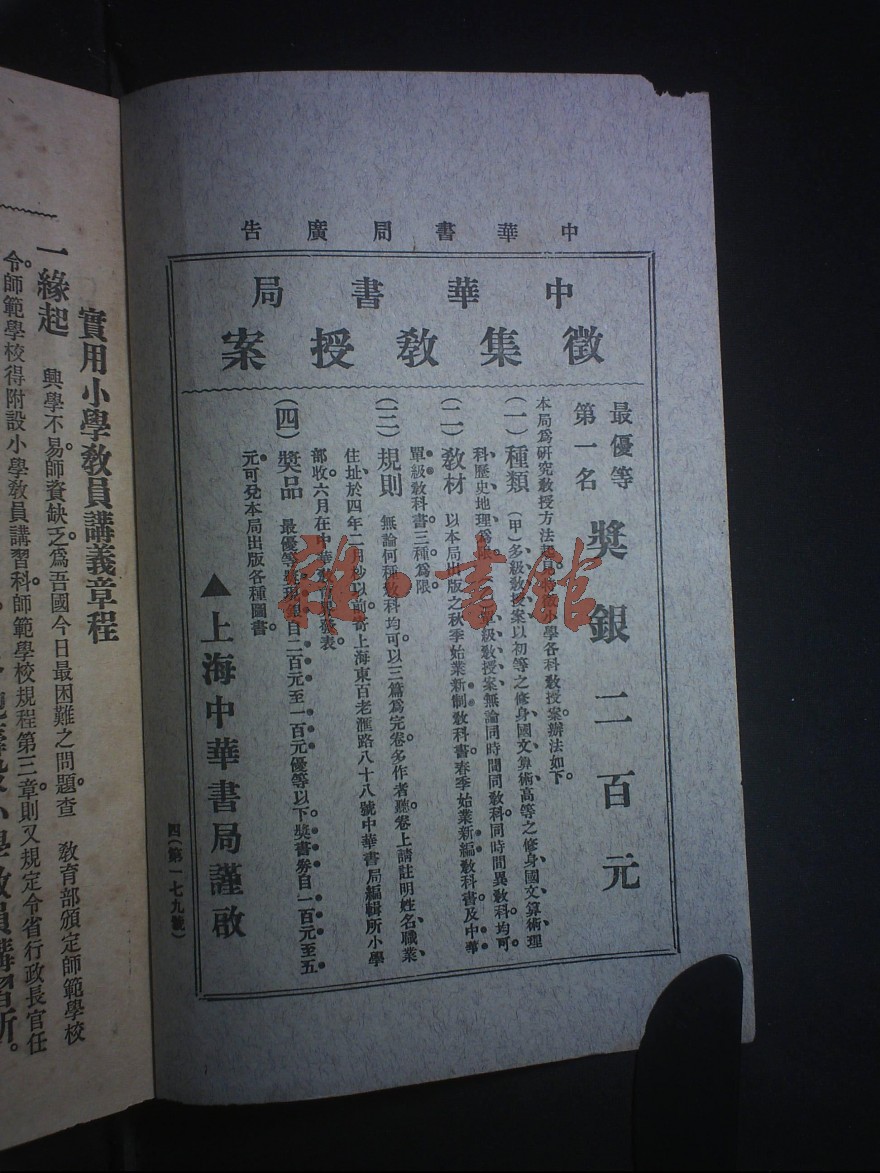 中華書局廣告
中華書局
徵集教授案
最優等
第一名
獎銀二百元
本局爲研究教授方法起見 小學各科教授案辦法如下。
(一)種類 (甲)多級教授案以初等之修身、國文、算術、高等之修身、國文、算術、理
科、歷史、地理、爲限。 單級教授案無論同時間同教科、同時間異教科、均可。
(二)教材 以本局出版之秋季始業新制教科書春季始業新編教科書及中華
單級教科書三種爲限。
(三)規則 無論何種教科均可以三篇爲完卷多作者聽。卷上請註明姓名、職業、
住址、於四年二月杪以前寄上海東百老匯路八十八號中華書局編輯所小學
部收。六月在中華教育界發表。
(四)獎品 最優等 現銀自二百元至一百元優等以下獎書劵自一百元至五
元可兌本局出版各種圖書。
▲上海中華書局謹啟
四(第一七九號)
實用小學教員講義章程
一緣起 興學不易。師資缺乏。爲吾國今日最困難之問題。查 教育部頒定師範學校
令。師範學校得附設小學教員講習科。師範學校規程第三章。則又規定令省行政長官任
小學教員講習所。
啟·書館